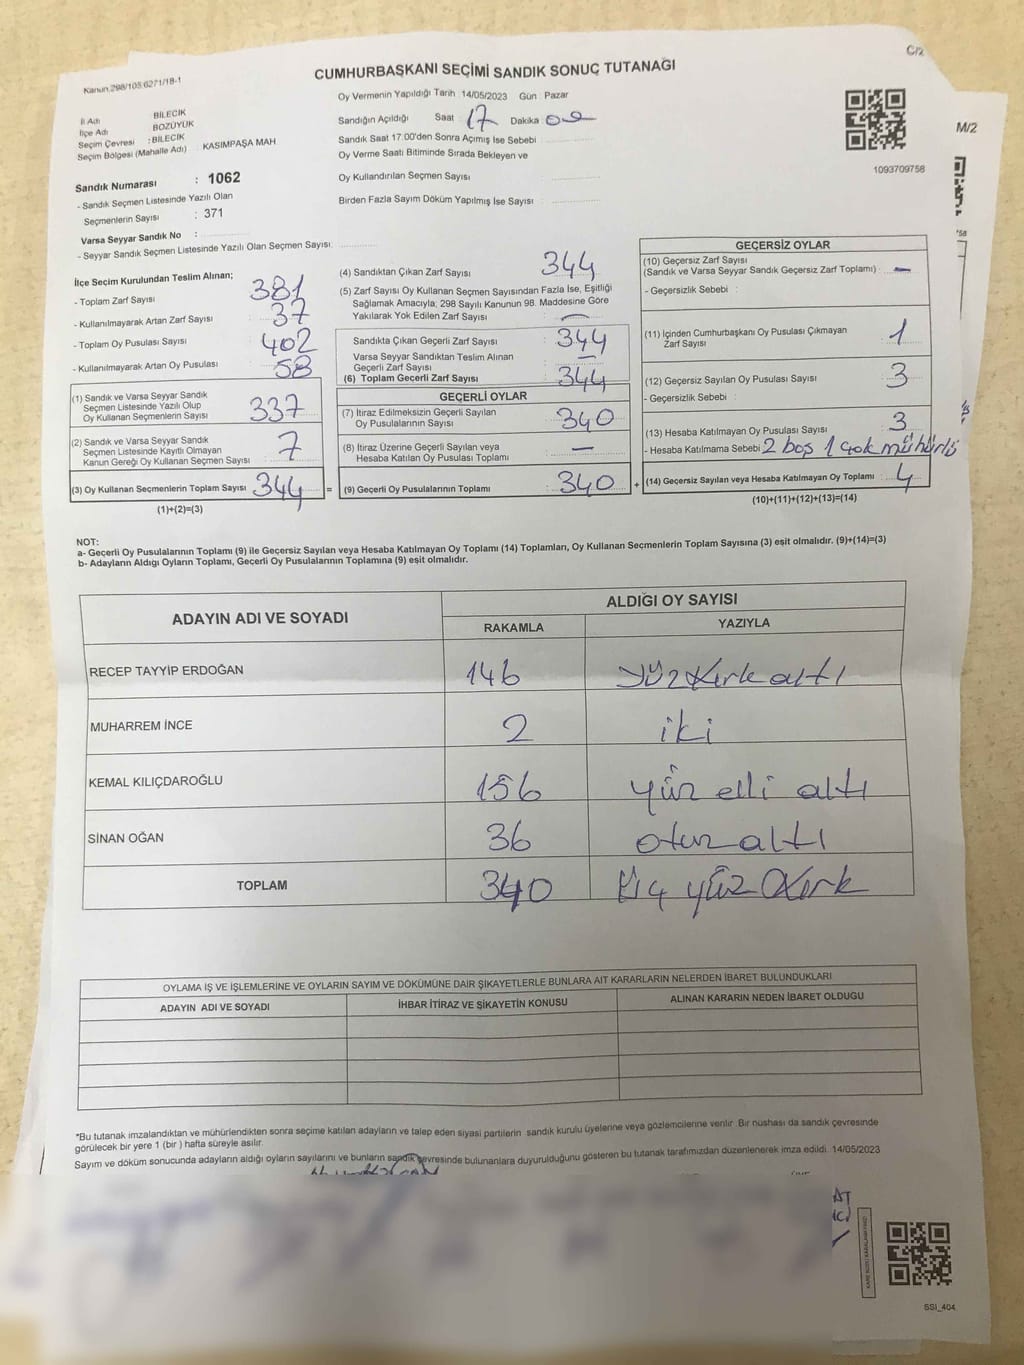 C/2
Kanun 298/105 6271/18-1
CUMHURBAŞKANI SEÇİMİ SANDIK SONUÇ TUTANAĞI
Oy Vermenin Yapıldığı Tarih : 14/05/2023 Gün : Pazar
İl Adı BİLECİK
İlçe Adı BOZÜYÜK
Seçim Çevresi : BİLECİK
Seçim Bölgesi (Mahalle Adı) : KASIMPAŞA MAH
Sandığın Açıldığı Saat : 17 Dakika :
Sandık Saat 17:00'den Sonra Açımış İse Sebebi :
Oy Verme Saati Bitiminde Sırada Bekleyen ve
Oy Kullandırılan Seçmen Sayısı :
Birden Fazla Sayım Döküm Yapılmış İse Sayısı :
1093709758
M/2
Sandık Numarası : 1062
- Sandık Seçmen Listesinde Yazılı Olan
Seçmenlerin Sayısı : 371
Varsa Seyyar Sandık No :
- Seyyar Sandık Seçmen Listesinde Yazılı Olan Seçmen Sayısı:
İlçe Seçim Kurulundan Teslim Alınan;
- Toplam Zarf Sayısı : 381
- Kullanılmayarak Artan Zarf Sayısı : 37
- Toplam Oy Pusulası Sayısı : 402
- Kullanılmayarak Artan Oy Pusulası : 58
(1) Sandık ve Varsa Seyyar Sandık
Seçmen Listesinde Yazılı Olup
Oy Kullanan Seçmenlerin Sayısı : 337
(2) Sandık ve Varsa Seyyar Sandık
Seçmen Listesinde Kayıtlı Olmayan
Kanun Gereği Oy Kullanan Seçmen Sayısı : 7
(3) Oy Kullanan Seçmenlerin Toplam Sayısı : 344 =
(1)+(2)=(3)
(4) Sandıktan Çıkan Zarf Sayısı : 344
(5) Zarf Sayısı Oy Kullanan Seçmen Sayısından Fazla İse, Eşitliği
Sağlamak Amacıyla; 298 Sayılı Kanunun 98. Maddesine Göre
Yakılarak Yok Edilen Zarf Sayısı : —
Sandıkta Çıkan Geçerli Zarf Sayısı : 344
Varsa Seyyar Sandıktan Teslim Alınan
Geçerli Zarf Sayısı : —
(6) Toplam Geçerli Zarf Sayısı : 344
GEÇERLİ OYLAR
(7) İtiraz Edilmeksizin Geçerli Sayılan
Oy Pusulalarının Sayısı : 340
(8) İtiraz Üzerine Geçerli Sayılan veya
Hesaba Katılan Oy Pusulası Toplamı : —
(9) Geçerli Oy Pusulalarının Toplamı : 340 +
GEÇERSİZ OYLAR
(10) Geçersiz Zarf Sayısı
(Sandık ve Varsa Seyyar Sandık Geçersiz Zarf Toplamı) : —
- Geçersizlik Sebebi :
(11) İçinden Cumhurbaşkanı Oy Pusulası Çıkmayan
Zarf Sayısı : 1
(12) Geçersiz Sayılan Oy Pusulası Sayısı : 3
- Geçersizlik Sebebi :
(13) Hesaba Katılmayan Oy Pusulası Sayısı : 3
- Hesaba Katılmama Sebebi : 2 boş 1 çok mühürlü
(14) Geçersiz Sayılan veya Hesaba Katılmayan Oy Toplamı : 4
(10)+(11)+(12)+(13)=(14)
NOT:
a- Geçerli Oy Pusulalarının Toplamı (9) ile Geçersiz Sayılan veya Hesaba Katılmayan Oy Toplamı (14) Toplamları, Oy Kullanan Seçmenlerin Toplam Sayısına (3) eşit olmalıdır. (9)+(14)=(3)
b- Adayların Aldığı Oyların Toplamı, Geçerli Oy Pusulalarının Toplamına (9) eşit olmalıdır.
ADAYIN ADI VE SOYADI ALDIĞI OY SAYISI
RAKAMLA YAZIYLA
RECEP TAYYİP ERDOĞAN 146 yüz kırk altı
MUHARREM İNCE 2 iki
KEMAL KILIÇDAROĞLU 156 yüz elli altı
SİNAN OĞAN 36 otuz altı
TOPLAM 340 üç yüz kırk
OYLAMA İŞ VE İŞLEMLERİNE VE OYLARIN SAYIM VE DÖKÜMÜNE DAİR ŞİKAYETLERLE BUNLARA AİT KARARLARIN NELERDEN İBARET BULUNDUKLARI
ADAYIN ADI VE SOYADI İHBAR İTİRAZ VE ŞİKAYETİN KONUSU ALINAN KARARIN NEDEN İBARET OLDUĞU
*Bu tutanak imzalandıktan ve mühürlendikten sonra seçime katılan adayların ve talep eden siyasi partilerin sandık kurulu üyelerine veya gözlemcilerine verilir. Bir nüshası da sandık çevresinde
görülecek bir yere 1 (bir ) hafta süreyle asılır.
Sayım ve döküm sonucunda adayların aldığı oyların sayılarını ve bunların sandık çevresinde bulunanlara duyurulduğunu gösteren bu tutanak tarafımızdan düzenlenerek imza edildi. 14/05/2023
SSİ_404